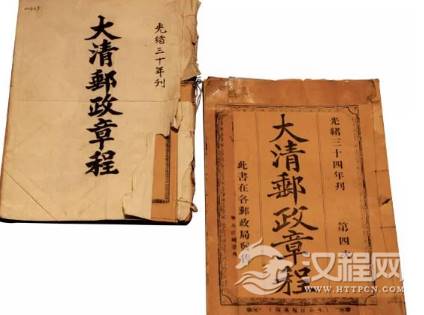 光緒三十年刊
大清郵政章程
光緒三十四年刊
第四
大清郵政章程
此書在各郵政局
汉程网
HTTPCN.COM